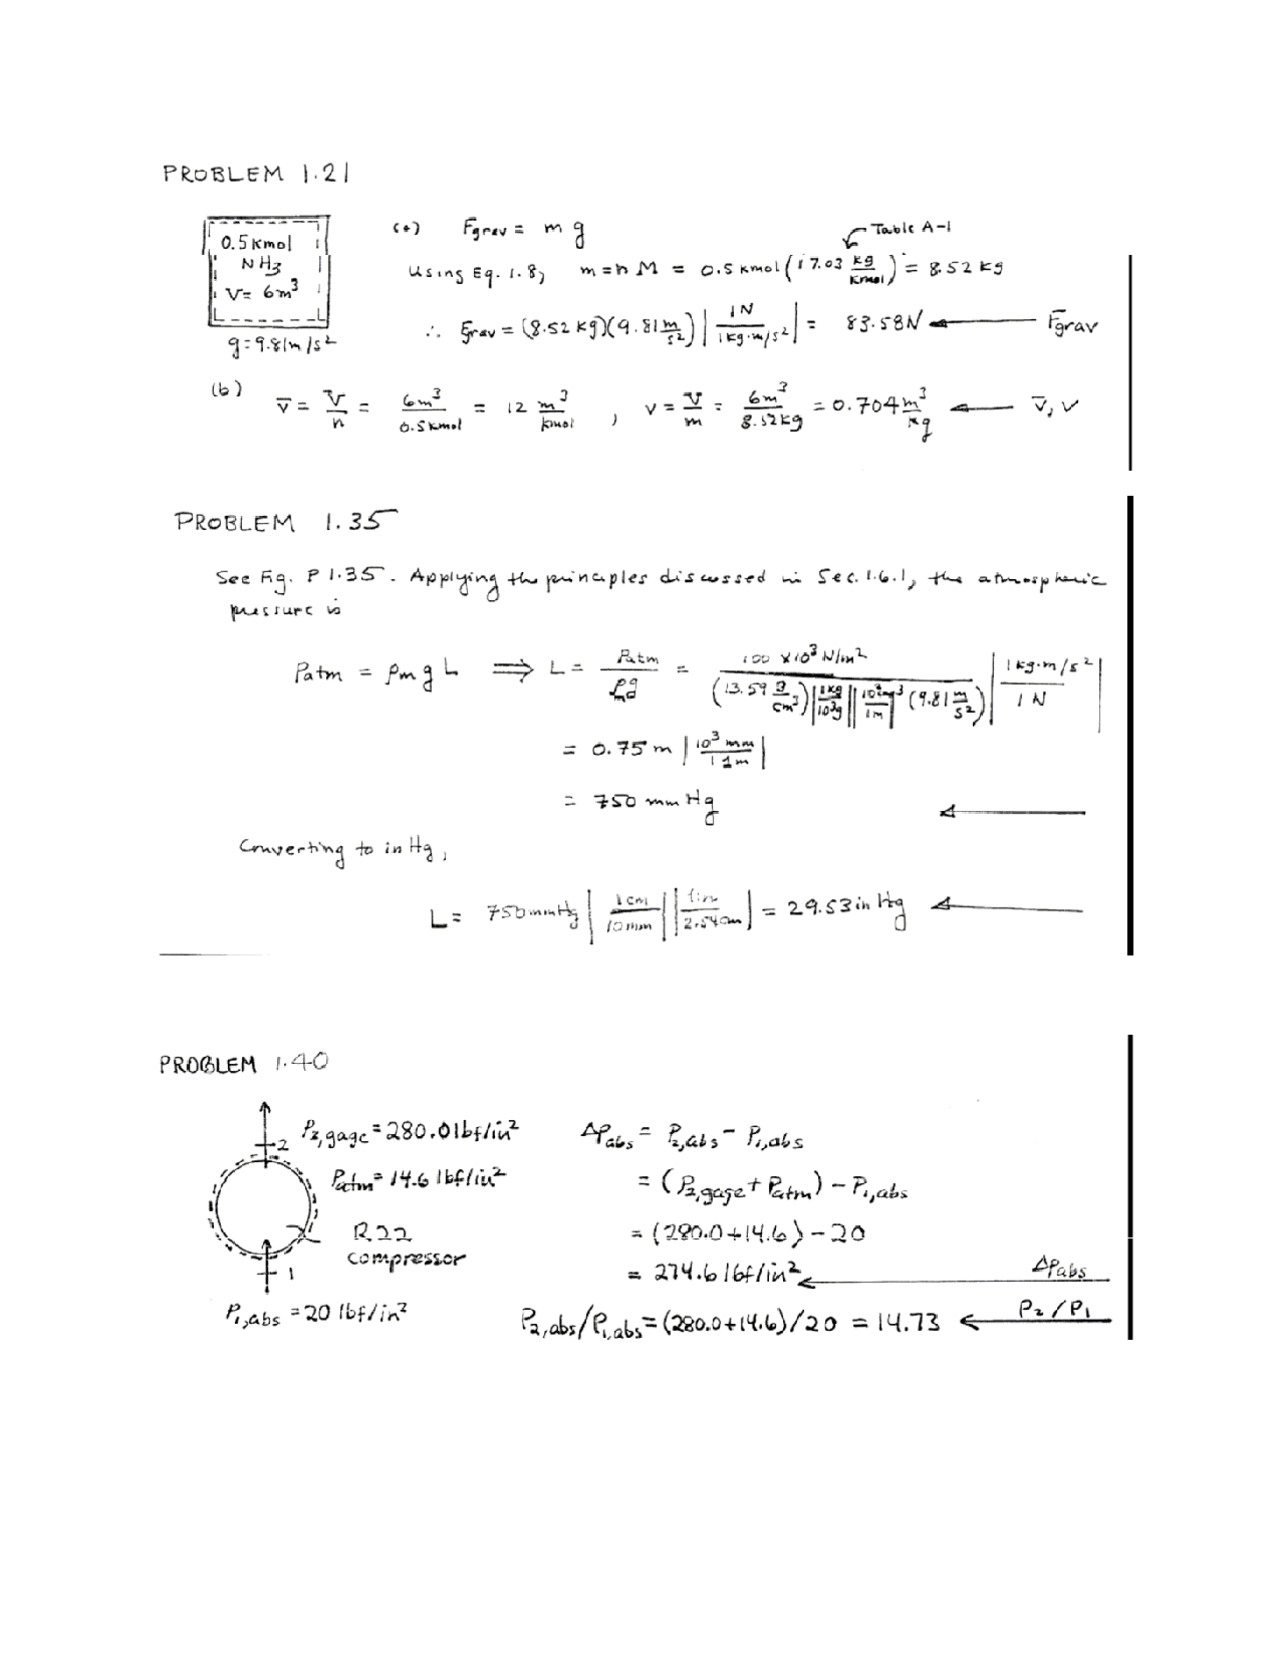 PROBLEM 1.21
0.5 kmol
NH3
V= 6m³
g=9.81m/s²
(a) Fgrav = m g
Table A-1
Using Eq. 1.8, m=nM = 0.5 kmol(17.03 kg/kmol) = 8.52 kg
∴ Fgrav = (8.52 kg)(9.81 m/s²) |1N/1kg·m/s²| = 83.58N Fgrav
(b) v̄ = V/n = 6m³/0.5kmol = 12 m³/kmol , v = V/m = 6m³/8.52kg = 0.704 m³/kg v̄, v
PROBLEM 1.35
See Fig. P1.35. Applying the principles discussed in Sec. 1.6.1, the atmospheric
pressure is
Patm = ρm g L ⟹ L = Patm/ρm g = 100 ×10³ N/m²/(13.59 g/cm³)|1kg/10³g||10²cm/1m|³(9.81 m/s²) |1kg·m/s²/1N|
= 0.75 m |10³ mm/1m|
= 750 mm Hg
Converting to in Hg,
L = 750mmHg |1cm/10mm||1in/2.54cm| = 29.53 in Hg
PROBLEM 1.40
P2,gage = 280.0 lbf/in²
2
Patm = 14.6 lbf/in²
R22
compressor
1
P1,abs = 20 lbf/in²
ΔPabs = P2,abs - P1,abs
= (P2,gage + Patm) - P1,abs
= (280.0+14.6) - 20
= 274.6 lbf/in² ΔPabs
P2,abs/P1,abs = (280.0+14.6)/20 = 14.73 P2/P1